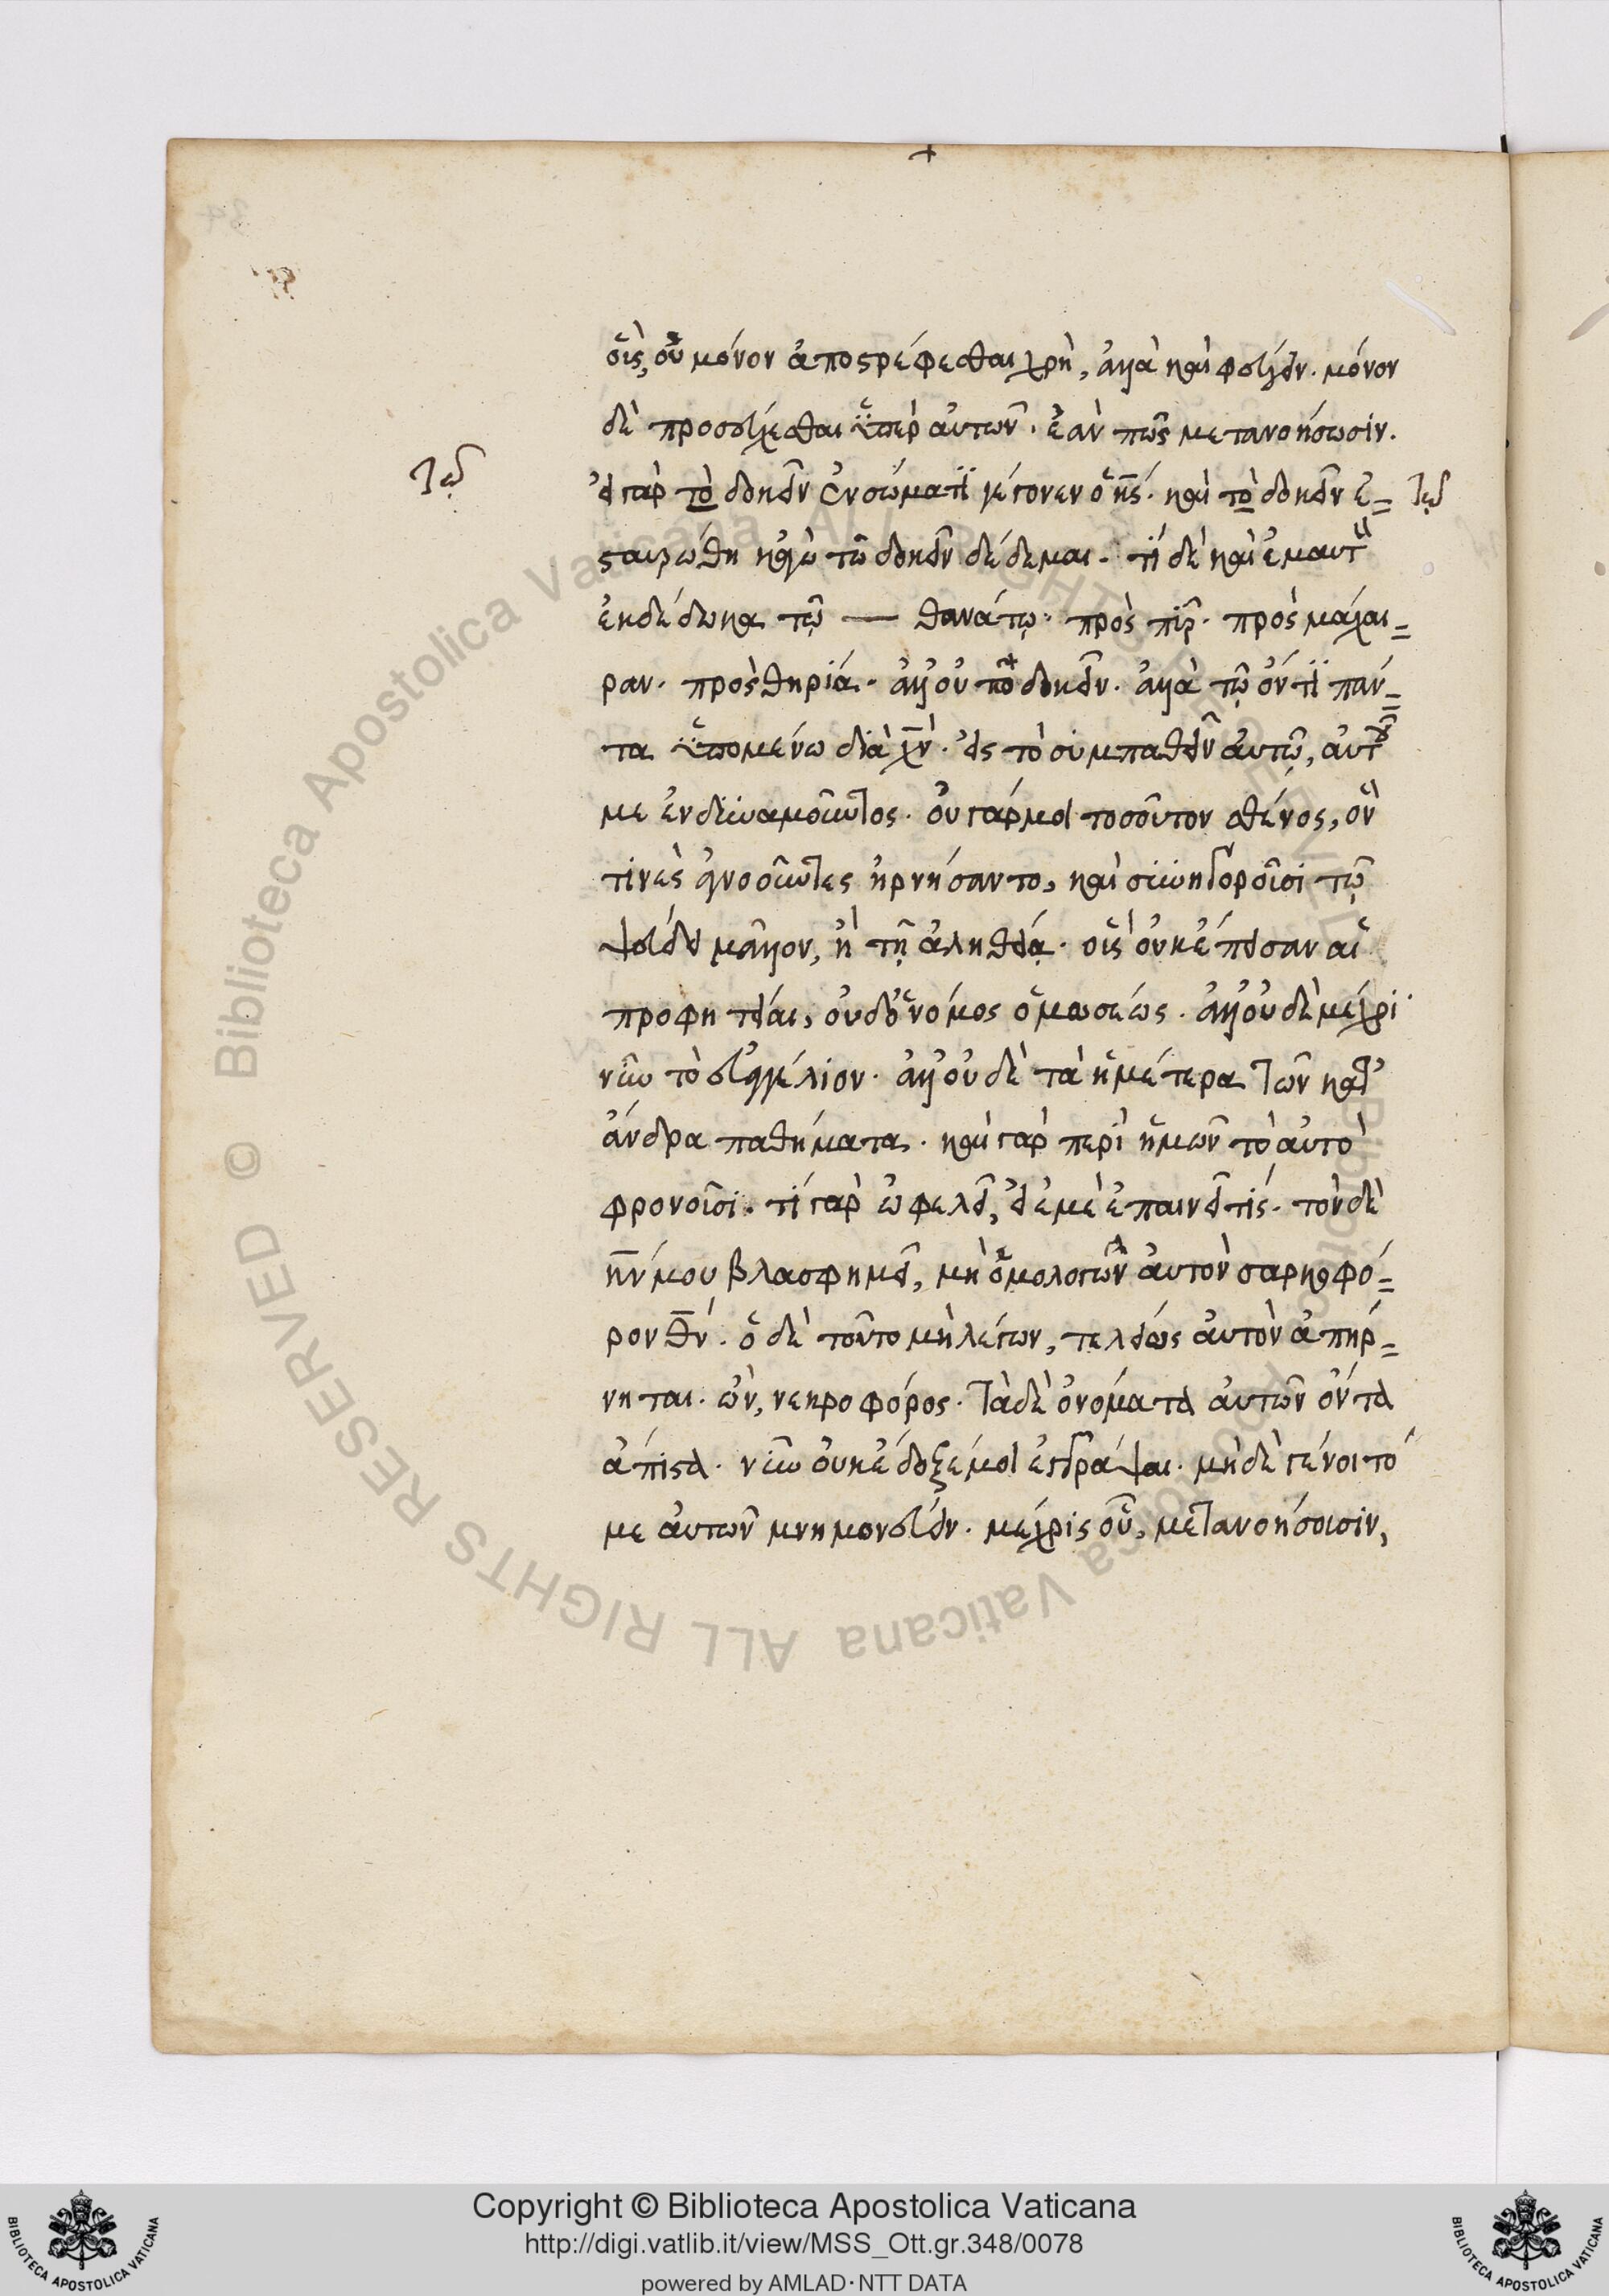 +
οἷς, οὐ μόνον ἀποστρέφεσθαι χρὴ, ἀλλὰ καὶ φεύγειν. μόνον
δὲ προσεύχεσθαι ὑπὲρ αὐτῶν. ἐὰν πως μετανοήσωσιν.
Τῷ
εἰ γαρ τὸ δοκεῖν ἐν σώματι γέγονεν ὁ κς. καὶ τὸ δοκεῖν ἐ=
τῷ
σταυρώθη κἀγὼ τῶ δοκεῖν δέδεμαι. τί δὲ καὶ ἐμαυτὸν
ἐκδέδωκα τῷ — θανάτῳ. πρὸς πῦρ. πρὸς μάχαι=
ραν. πρὸς θηρία. ἀλλ' οὐ τὸ δοκεῖν. ἀλλὰ τῷ ὄντι πάν=
τα ὑπομένω διὰ χν. εἰς τὸ συμπαθεῖν αὐτῷ, αὐτοῦ
με ἐνδυναμοῦντος. οὐ γάρ μοι τοσοῦτον σθένος, ὅν
τινες ἀγνοοῦντες ἠρνήσαντο, καὶ συνηγοροῦσι τῷ
ψεύδει μᾶλλον, ἢ τῇ ἀληθείᾳ. οὓς οὐκ ἔπεισαν αἱ
προφητεῖαι, οὐδ' ὁ νόμος ὁ μωσέως. ἀλλ' οὐδὲ μέχρι
νῦν τὸ εὐαγγέλιον. ἀλλ' οὐδὲ τὰ ἡμέτερα τῶν κατ'
ἄνδρα παθήματα. καὶ γὰρ περὶ ἡμῶν τὸ αὐτὸ
φρονοῦσι. τί γὰρ ὠφελεῖ, εἰ ἐμὲ ἐπαινεῖ τίς. τὸν δὲ
κν μου βλασφημεῖ, μὴ ὁμολογῶν αὐτὸν σαρκοφό=
ρον θν. ὁ δὲ τοῦτο μὴ λέγων, τελείως αὐτὸν ἀπήρ=
νηται. ὢν, νεκροφόρος. τὰ δὲ ὀνόματα αὐτῶν ὄντα
ἄπιστα. νῦν οὐκ ἔδοξέ μοι ἐγγράψαι. μὴ δὲ γένοιτό
με αὐτῶν μνημονεύειν. μέχρις οὗ, μετανοήσουσιν,
Copyright © Biblioteca Apostolica Vaticana
http://digi.vatlib.it/view/MSS_Ott.gr.348/0078
powered by AMLAD·NTT DATA
BIBLIOTECA APOSTOLICA VATICANA
BIBLIOTECA APOSTOLICA VATICANA
Biblioteca Apostolica Vaticana ALL RIGHTS RESERVED © Biblioteca Apostolica Vaticana ALL RIGHTS RESERVED ©